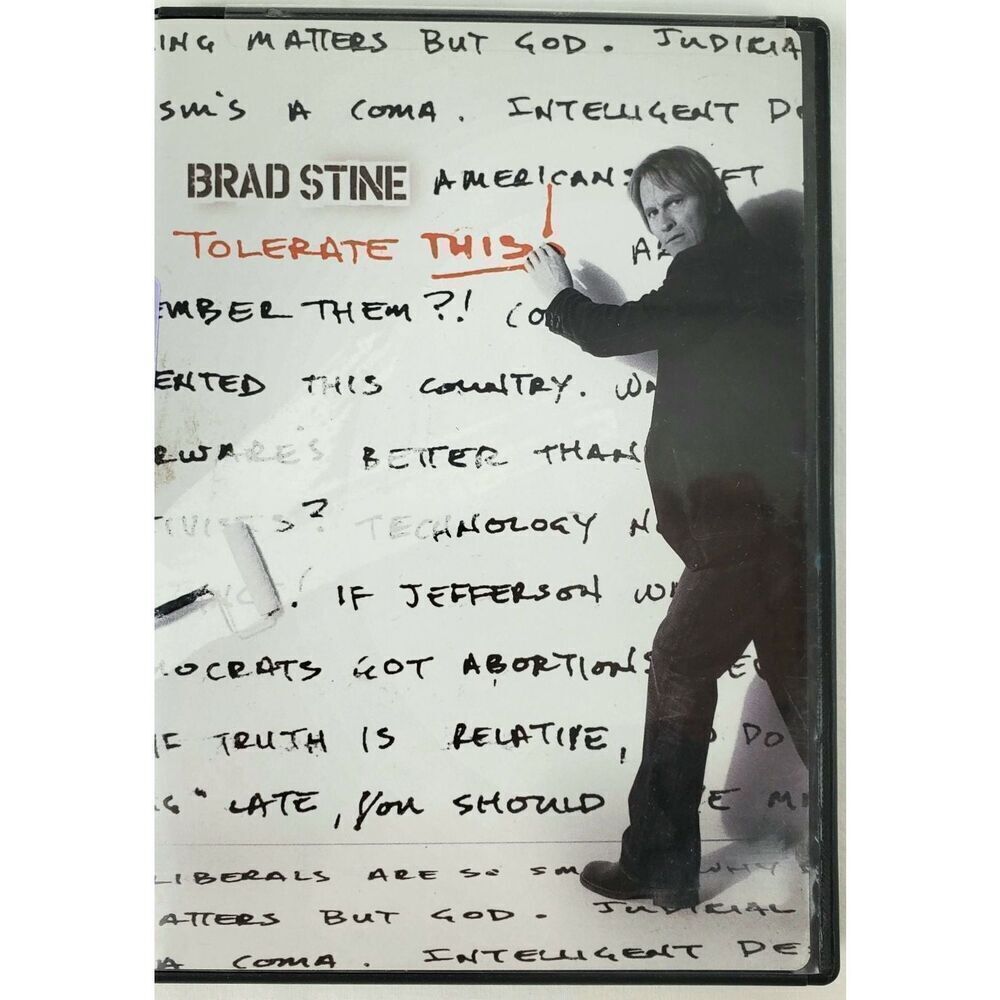 ING MATTERS BUT GOD. JUDICIA
SM'S A COMA. INTELLIGENT DE
BRAD STINE AMERICANS
TOLERATE THIS!
EMBER THEM?! CO
ENTED THIS COUNTRY. WA
RWARE'S BETTER THAN
TIVISTS? TECHNOLOGY N
! IF JEFFERSON WI
OCRATS GOT ABORTIONS
IF TRUTH IS RELATIVE, DO
" LATE, YOU SHOULD
LIBERALS ARE SO SM WHY
ATTERS BUT GOD. JUDICIAL
A COMA. INTELLIGENT DE